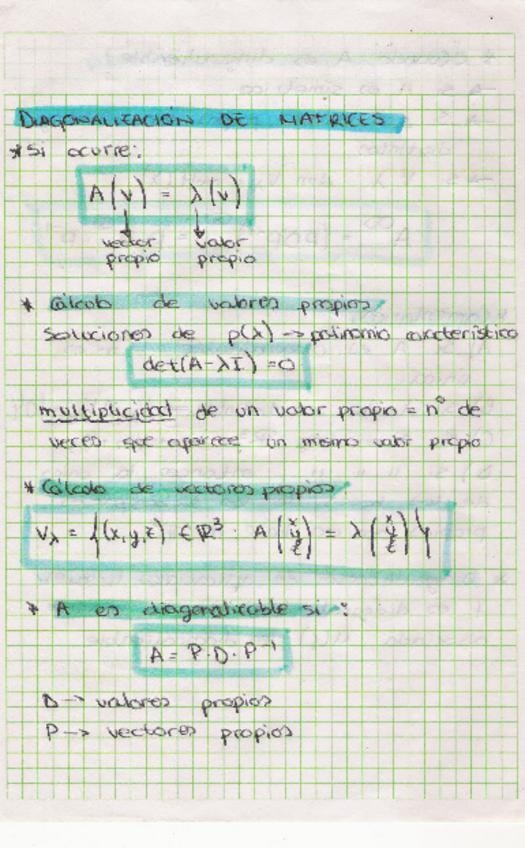 DIAGONALIZACIÓN DE MATRICES
* Si ocurre:
A(v) = λ(v)
vector propio
valor propio
* Cálculo de valores propios:
Soluciones de p(λ) → polinomio característico
det(A-λI) = 0
multiplicidad de un valor propio = nº de
veces que aparece un mismo valor propio
* Cálculo de vectores propios:
Vλ = {(x,y,z) ∈ ℝ³ · A (x y z) = λ (x y z)}
* A es diagonalizable si:
A = P·D·P⁻¹
D → valores propios
P → vectores propios